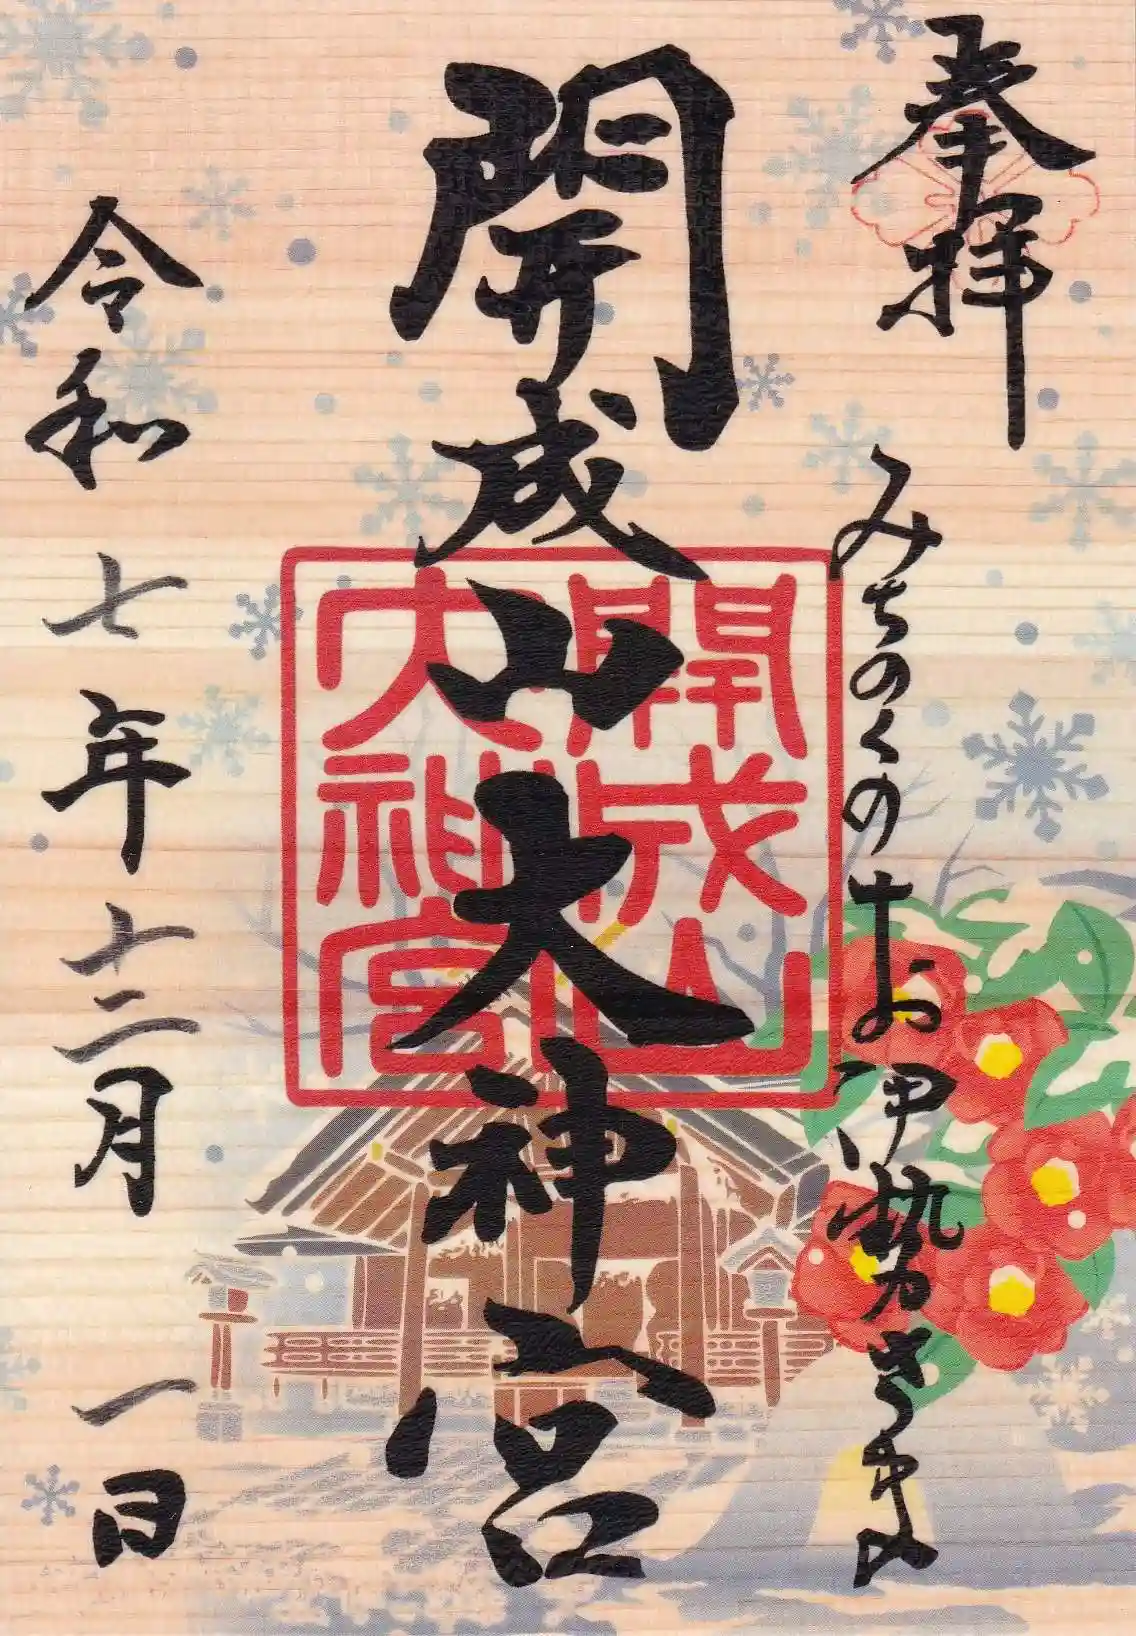 奉拝
みちのくのお伊勢さま
開成山大神宮
開成山
大神宮
令和七年十二月一日